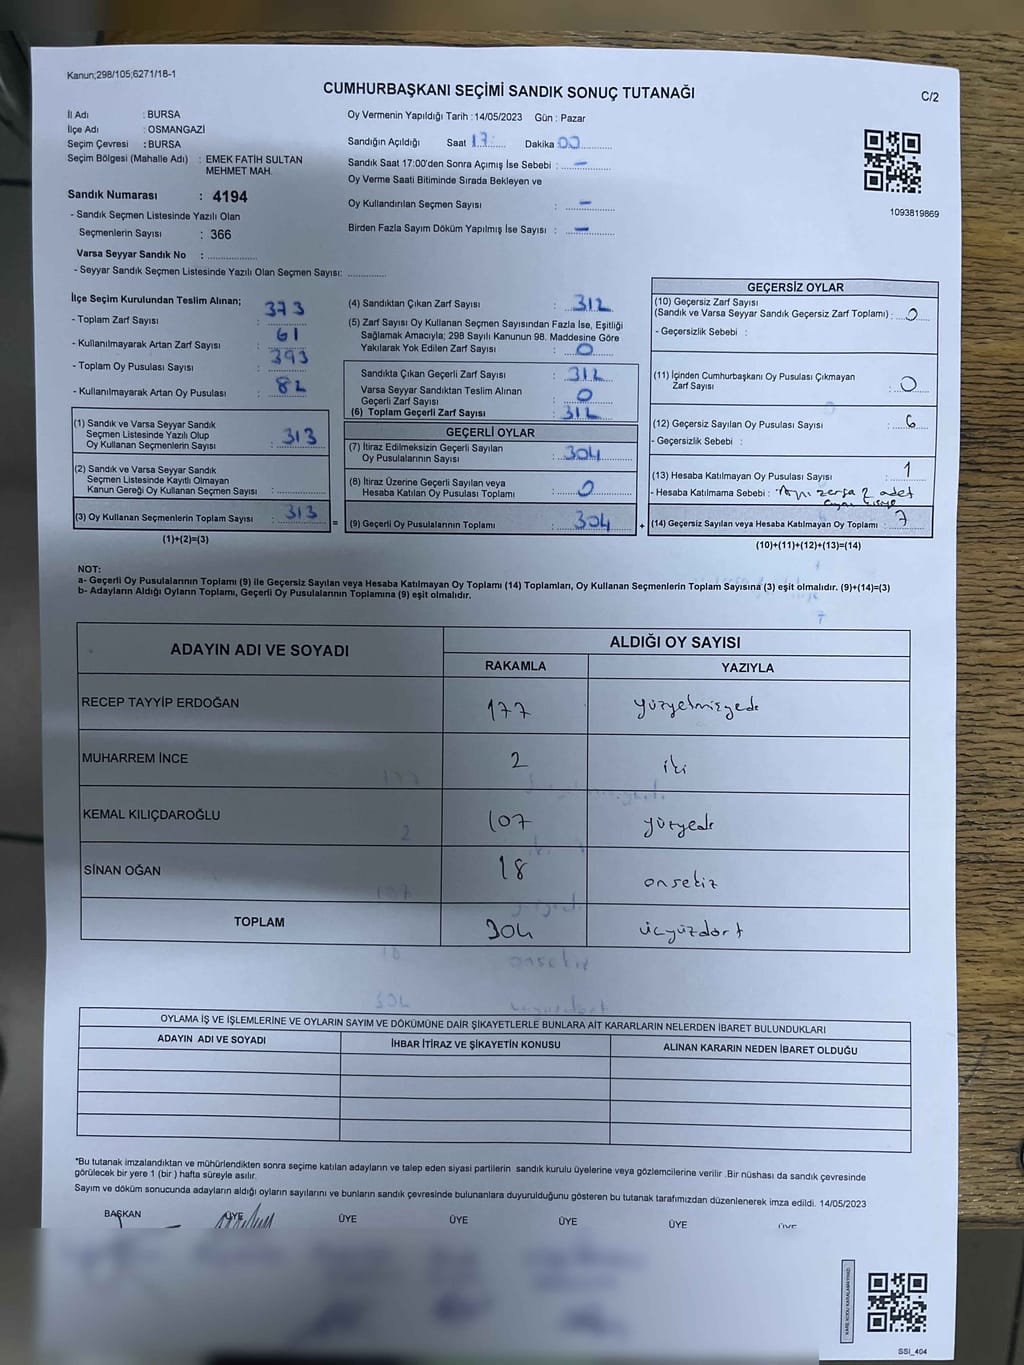 Kanun;298/105;6271/18-1
CUMHURBAŞKANI SEÇİMİ SANDIK SONUÇ TUTANAĞI
C/2
İl Adı : BURSA
İlçe Adı : OSMANGAZİ
Seçim Çevresi : BURSA
Seçim Bölgesi (Mahalle Adı) : EMEK FATİH SULTAN
MEHMET MAH.
Sandık Numarası : 4194
- Sandık Seçmen Listesinde Yazılı Olan
Seçmenlerin Sayısı : 366
Varsa Seyyar Sandık No :
- Seyyar Sandık Seçmen Listesinde Yazılı Olan Seçmen Sayısı:
Oy Vermenin Yapıldığı Tarih : 14/05/2023 Gün : Pazar
Sandığın Açıldığı Saat 17 Dakika 00
Sandık Saat 17:00'den Sonra Açılmış İse Sebebi : -
Oy Verme Saati Bitiminde Sırada Bekleyen ve
Oy Kullandırılan Seçmen Sayısı : -
Birden Fazla Sayım Döküm Yapılmış İse Sayısı : -
1093819869
İlçe Seçim Kurulundan Teslim Alınan;
- Toplam Zarf Sayısı : 373
- Kullanılmayarak Artan Zarf Sayısı : 61
- Toplam Oy Pusulası Sayısı : 393
- Kullanılmayarak Artan Oy Pusulası : 82
(1) Sandık ve Varsa Seyyar Sandık
Seçmen Listesinde Yazılı Olup
Oy Kullanan Seçmenlerin Sayısı : 313
(2) Sandık ve Varsa Seyyar Sandık
Seçmen Listesinde Kayıtlı Olmayan
Kanun Gereği Oy Kullanan Seçmen Sayısı :
(3) Oy Kullanan Seçmenlerin Toplam Sayısı : 313
(1)+(2)=(3)
(4) Sandıktan Çıkan Zarf Sayısı : 312
(5) Zarf Sayısı Oy Kullanan Seçmen Sayısından Fazla İse, Eşitliği
Sağlamak Amacıyla; 298 Sayılı Kanunun 98. Maddesine Göre
Yakılarak Yok Edilen Zarf Sayısı : 0
Sandıkta Çıkan Geçerli Zarf Sayısı : 312
Varsa Seyyar Sandıktan Teslim Alınan
Geçerli Zarf Sayısı : 0
(6) Toplam Geçerli Zarf Sayısı : 312
GEÇERLİ OYLAR
(7) İtiraz Edilmeksizin Geçerli Sayılan
Oy Pusulalarının Sayısı : 304
(8) İtiraz Üzerine Geçerli Sayılan veya
Hesaba Katılan Oy Pusulası Toplamı : 0
= (9) Geçerli Oy Pusulalarının Toplamı : 304
GEÇERSİZ OYLAR
(10) Geçersiz Zarf Sayısı
(Sandık ve Varsa Seyyar Sandık Geçersiz Zarf Toplamı) : 0
- Geçersizlik Sebebi :
(11) İçinden Cumhurbaşkanı Oy Pusulası Çıkmayan
Zarf Sayısı : 0
(12) Geçersiz Sayılan Oy Pusulası Sayısı : 6
- Geçersizlik Sebebi :
(13) Hesaba Katılmayan Oy Pusulası Sayısı : 1
- Hesaba Katılmama Sebebi : 2 adet
+ (14) Geçersiz Sayılan veya Hesaba Katılmayan Oy Toplamı : 7
(10)+(11)+(12)+(13)=(14)
NOT:
a- Geçerli Oy Pusulalarının Toplamı (9) ile Geçersiz Sayılan veya Hesaba Katılmayan Oy Toplamı (14) Toplamları, Oy Kullanan Seçmenlerin Toplam Sayısına (3) eşit olmalıdır. (9)+(14)=(3)
b- Adayların Aldığı Oyların Toplamı, Geçerli Oy Pusulalarının Toplamına (9) eşit olmalıdır.
ADAYIN ADI VE SOYADI
ALDIĞI OY SAYISI
RAKAMLA YAZIYLA
RECEP TAYYİP ERDOĞAN 177 yüzyetmişyedi
MUHARREM İNCE 2 iki
KEMAL KILIÇDAROĞLU 107 yüzyedi
SİNAN OĞAN 18 onsekiz
TOPLAM 304 üçyüzdört
OYLAMA İŞ VE İŞLEMLERİNE VE OYLARIN SAYIM VE DÖKÜMÜNE DAİR ŞİKAYETLERLE BUNLARA AİT KARARLARIN NELERDEN İBARET BULUNDUKLARI
ADAYIN ADI VE SOYADI İHBAR İTİRAZ VE ŞİKAYETİN KONUSU ALINAN KARARIN NEDEN İBARET OLDUĞU
*Bu tutanak imzalandıktan ve mühürlendikten sonra seçime katılan adayların ve talep eden siyasi partilerin sandık kurulu üyelerine veya gözlemcilerine verilir .Bir nüshası da sandık çevresinde
görülecek bir yere 1 (bir ) hafta süreyle asılır.
Sayım ve döküm sonucunda adayların aldığı oyların sayılarını ve bunların sandık çevresinde bulunanlara duyurulduğunu gösteren bu tutanak tarafımızdan düzenlenerek imza edildi. 14/05/2023
BAŞKAN ÜYE ÜYE ÜYE ÜYE ÜYE ÜYE
SSI_404